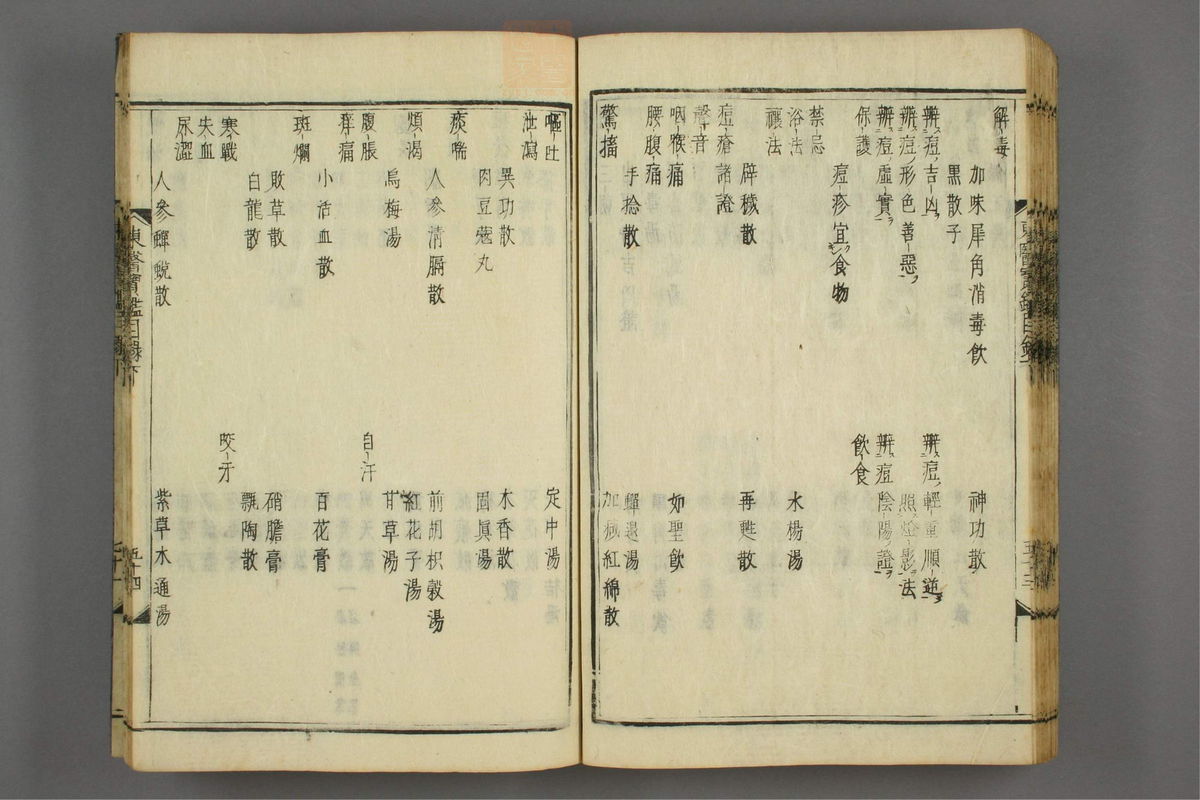 解毒
加味犀角消毒飮 神功散
黒散子
辨痘吉凶 辨痘輕重順逆
辨痘形色善惡 照燈影法
辨痘虛實 辨痘陰陽證
保護 飮食
痘疹宜食物
禁忌
浴法 水楊湯
禳法
辟穢散 再甦散
痘瘡諸證
聲音
咽喉痛 如聖飮
腰腹痛
手捻散 蟬退湯
驚搐 加減紅綿散
嘔吐 定中湯
泄瀉
異功散 木香散
肉豆蔲丸 固眞湯
痰喘
人參淸膈散 前胡枳殼湯
煩渴 紅花子湯
烏梅湯 甘草湯
腹脹 自汗
痒痛
小活血散 百花膏
斑爛
敗草散 硝膽膏
白龍散 瓢陶散
寒戰 咬牙
失血
尿澀
人參蟬蛻散 紫草木通湯
東醫寶鑑目錄下 五十四